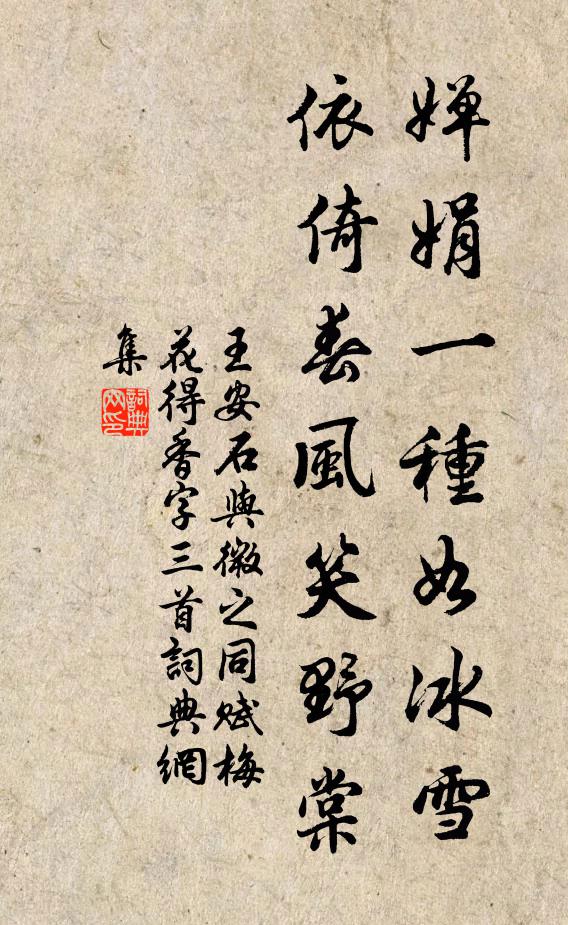 嬋娟一種如冰雪
依倚春風笑野棠
王安石與微之同賦梅
花得香字三首詞典網
集
詞典
網印